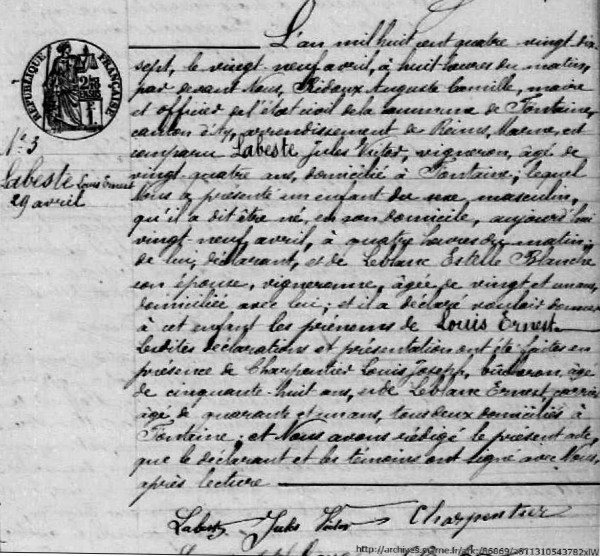 L'an mil huit cent quatre vingt dix
sept, le vingt neuf avril, à huit heures du matin,
par devant Nous, Ridoux Auguste Camille, maire
et officier de l'état civil de la commune de Fontaine,
canton d'Ay, arrondissement de Reims, Marne, est
comparu Labeste Jules Victor, vigneron, âgé de
vingt quatre ans, domicilié à Fontaine; lequel
Nous a présenté un enfant du sexe masculin,
qu'il a dit être né, en son domicile, aujourd'hui
vingt neuf avril, à quatre heures du matin,
de lui, déclarant, et de Leblanc Estelle Blanche
son épouse, vigneronne, âgée de vingt et un ans,
domiciliée avec lui; et il a déclaré vouloir donner
à cet enfant les prénoms de Louis Ernest
Lesdites déclarations et présentation ont été faites en
présence de Charpentier Louis Joseph, âgé
de cinquante huit ans, et de Leblanc Ernest,
âgé de quarante et un ans, tous deux domiciliés à
Fontaine; et Nous avons rédigé le présent acte,
que le déclarant et les témoins ont signé avec Nous,
après lecture
RÉPUBLIQUE FRANÇAISE
N° 3
Labeste Louis Ernest
29 avril
Labeste Jules Victor Charpentier